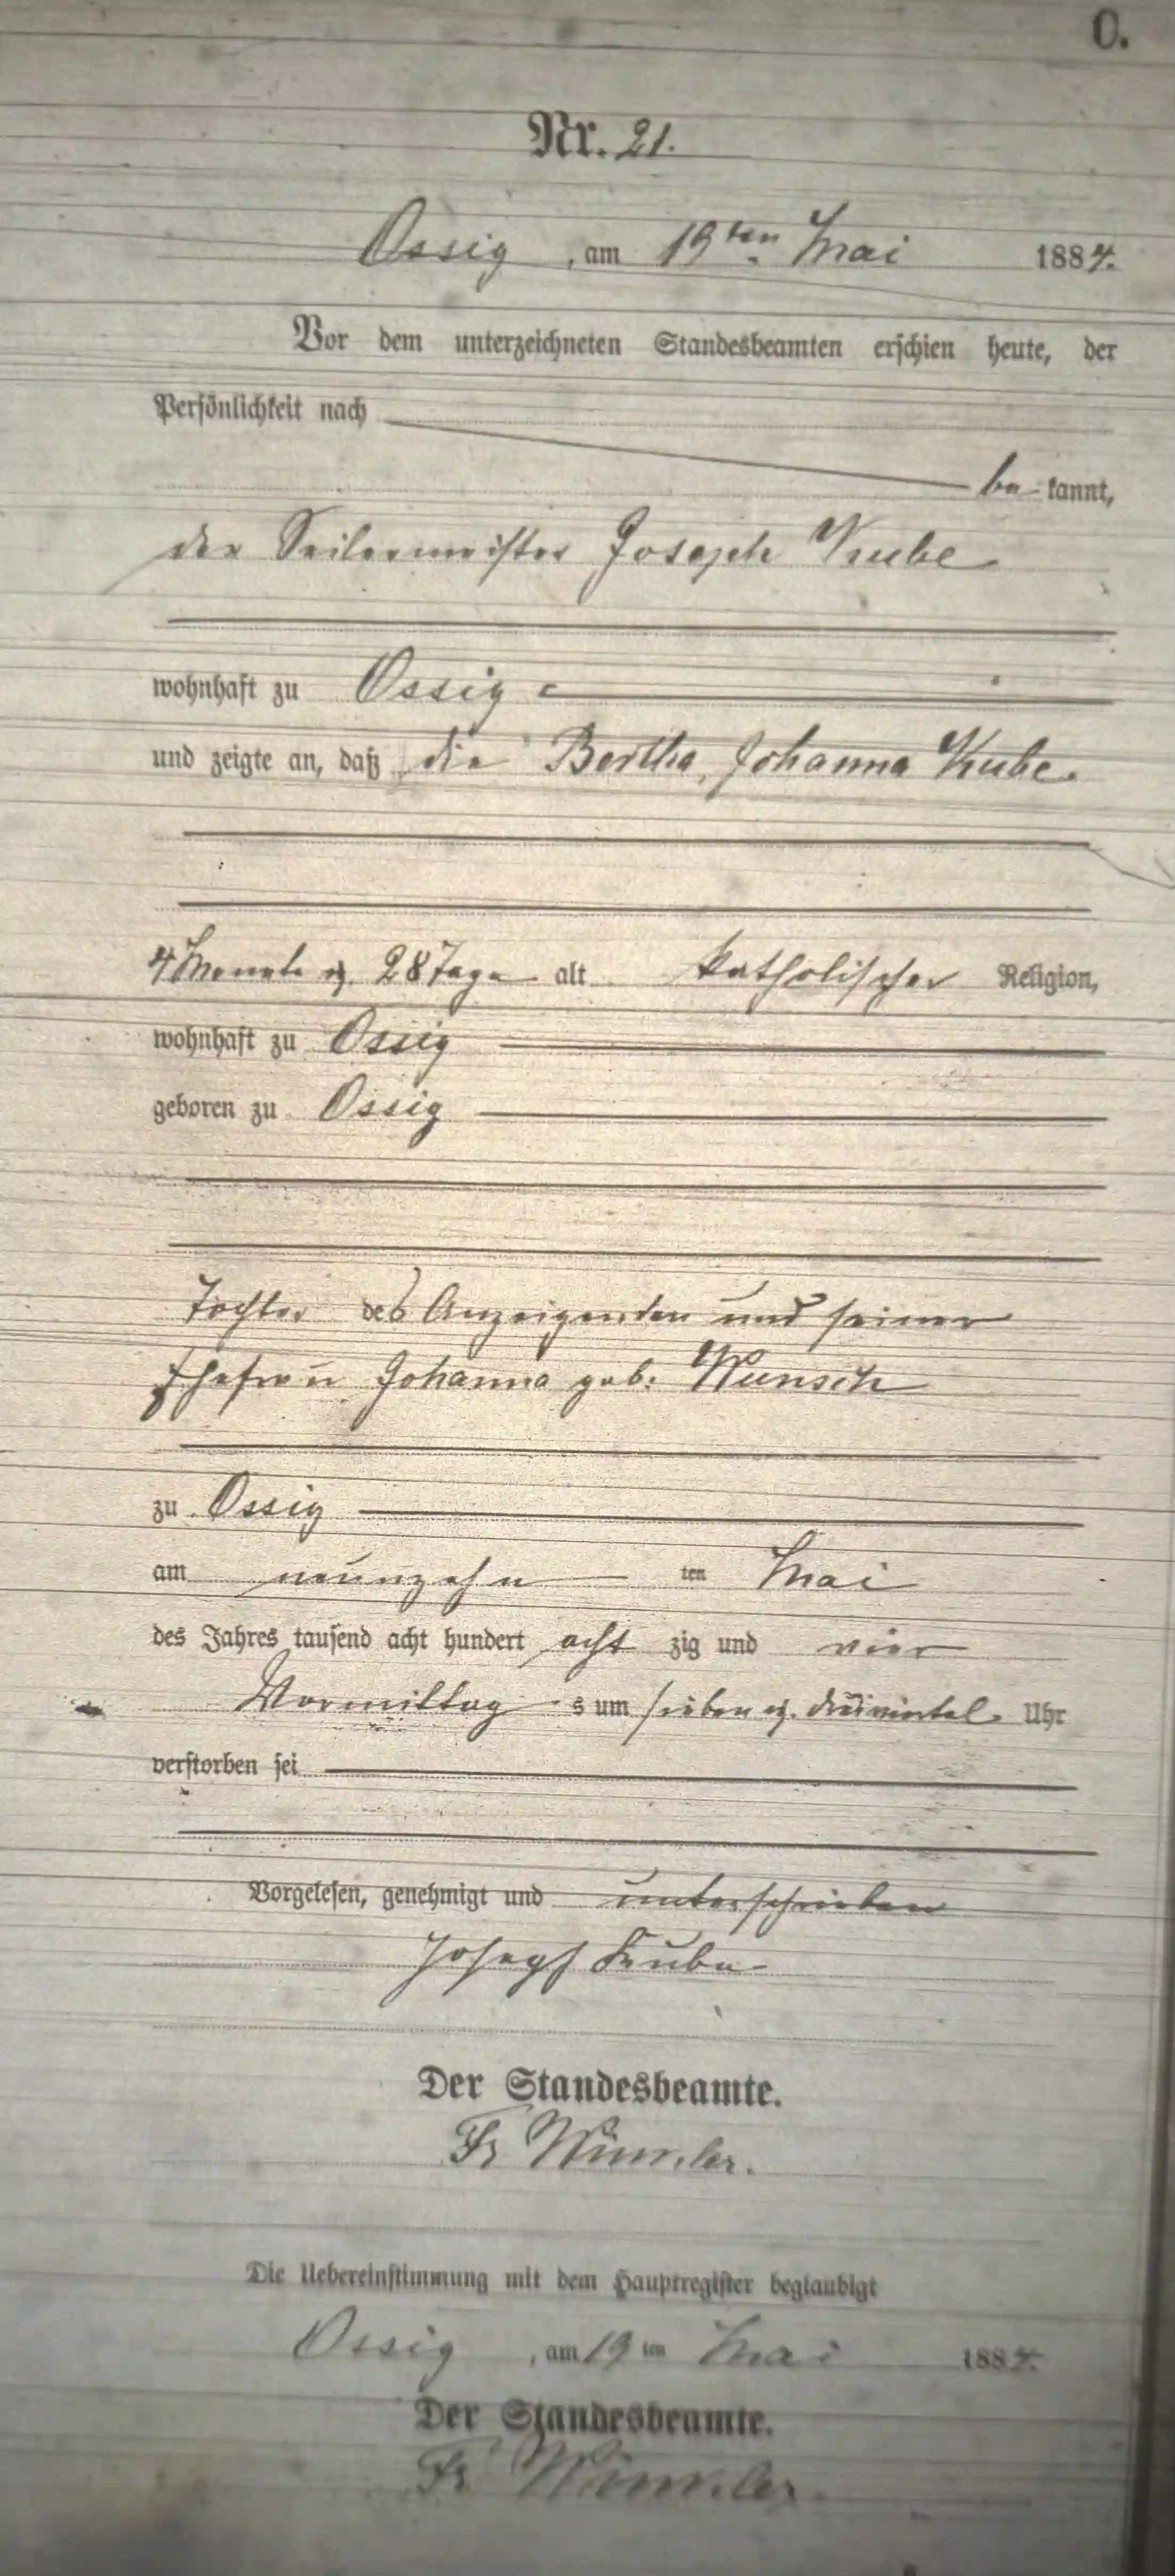 C.
Nr. 21.
Ossig, am 19ten Mai 1884.
Vor dem unterzeichneten Standesbeamten erschien heute, der
Persönlichkeit nach
be kannt,
der Seilermeister Joseph Kube
wohnhaft zu Ossig
und zeigte an, daß die Bertha, Johanna Kube.
4 Monate u. 28 Tage alt katholischer Religion,
wohnhaft zu Ossig
geboren zu Ossig
Tochter des Anzeigenden und seiner
Ehefrau Johanna geb. Wunsch
zu Ossig
am neunzehn ten Mai
des Jahres tausend acht hundert acht zig und vier
Vormittag s um sieben u. dreiviertel Uhr
verstorben sei
Vorgelesen, genehmigt und unterschrieben
Joseph Kube
Der Standesbeamte.
Fr
Die Uebereinstimmung mit dem Hauptregister beglaubigt
Ossig, am 19 ten Mai 1884.
Der Standesbeamte.
Fr